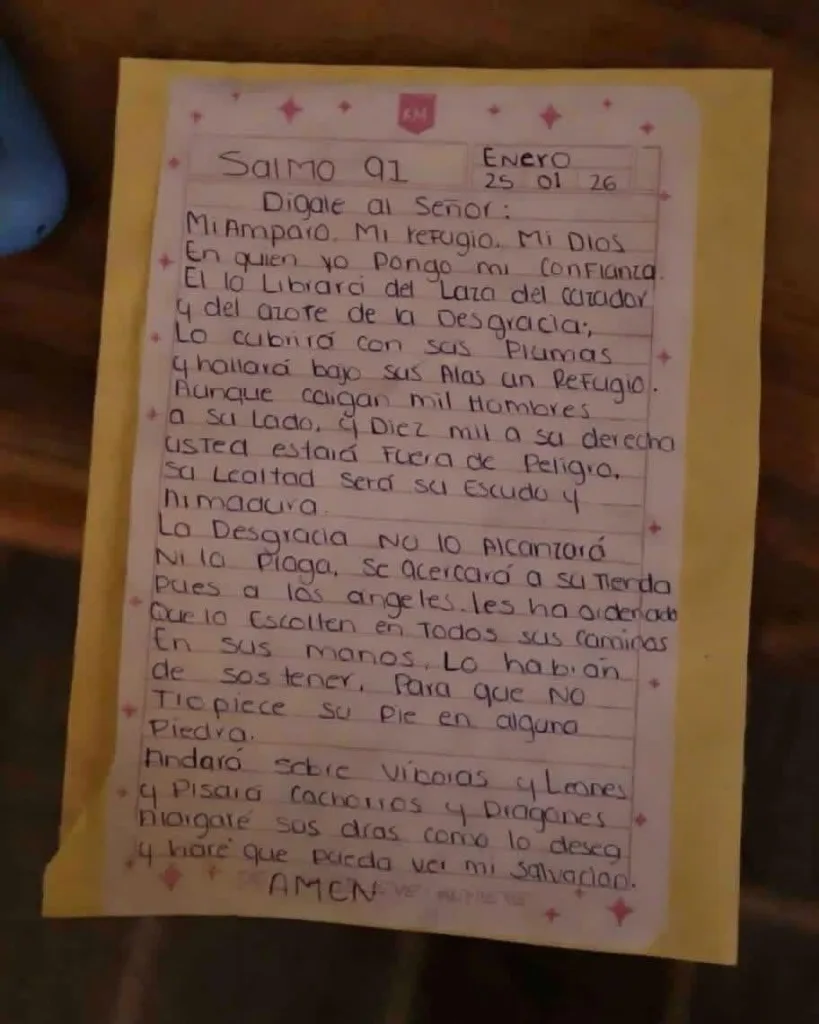 KM
Salmo 91
Enero
25 01 26
Digale al Señor:
Mi Amparo. Mi refugio. Mi Dios
En quien yo Pongo mi Confianza.
El lo Librará del Laza del cazador
y del azote de la Desgracia;,
Lo cubrirá con sus Plumas
y hallará bajo sus Alas un Refugio.
Aunque caigan mil Hombres
a su Lado, y Diez mil a su derecha
usted estará Fuera de Peligro,
su Lealtad será su Escudo y
Armadura.
La Desgracia No lo Alcanzará
Ni la Plaga, se acercará a su Tienda
Pues a los angeles. les ha ordenado
Que lo Escolten en Todos sus Caminos
En sus manos, Lo habián
de sostener, Para que NO
Tropiece su Pie en alguna
Piedra.
Andará sobre Víboras y Leones
y Pisará Cachorros y Dragones
Alargaré sus días como lo desea
y haré que pueda ver mi Salvación.
AMEN